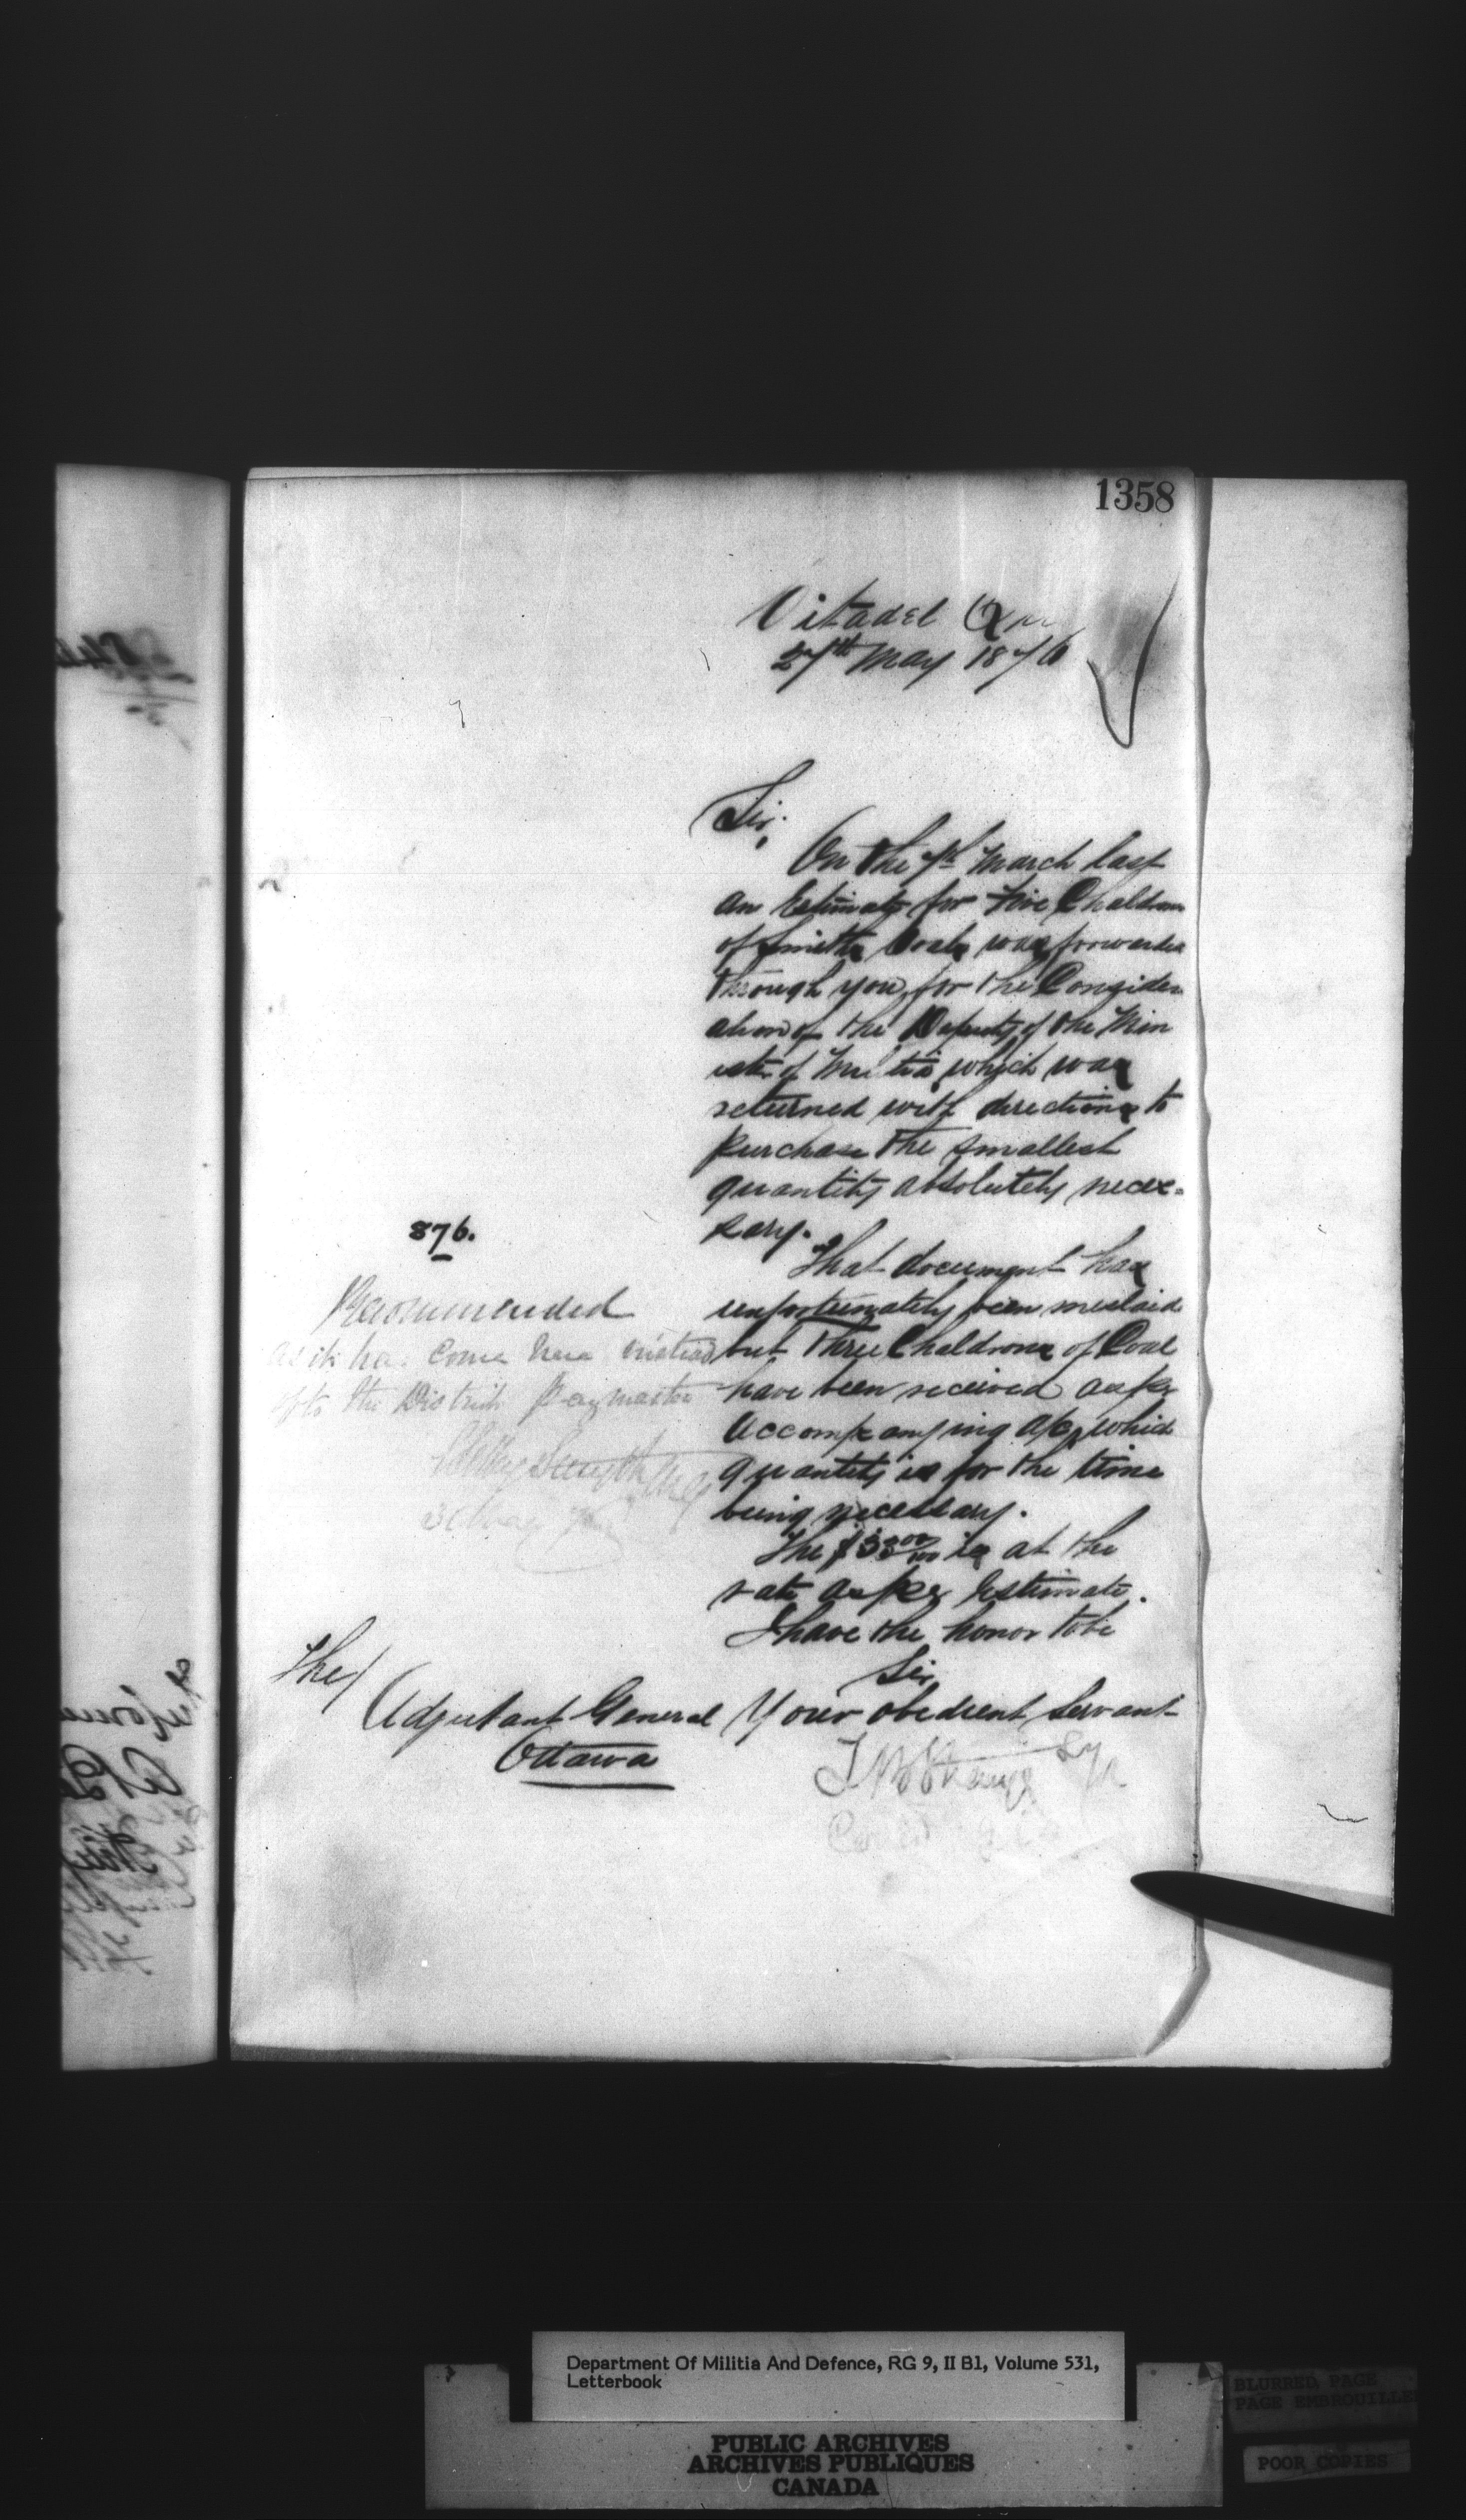 1358
Citadel
27th May 1876
Sir,
On the 7th March last
an Estimate for Five Chaldrons
of Smiths Coals was forwarded
through you, for the Consider
ation of the Deputy of the Min
ister of Militia, which was
returned with directions to
purchase the smallest
quantity absolutely neces-
sary.
That document has
unfortunately been mislaid
but Three Chaldrons of Coal
have been received as per
accompanying a/c, which
quantity is for the time
being necessary.
The is at the
rate as per Estimate.
I have the honor to be
Sir
Your obedient Servant
T B Strange
876.
Recommended
as it has come here instead
of to the District Paymaster
Selby Smyth
30 May
The/
Adjutant General
Ottawa
Department Of Militia And Defence, RG 9, II B1, Volume 531,
Letterbook
PUBLIC ARCHIVES
ARCHIVES PUBLIQUES
CANADA
BLURRED PAGE
PAGE EMBROUILLE
POOR COPIES